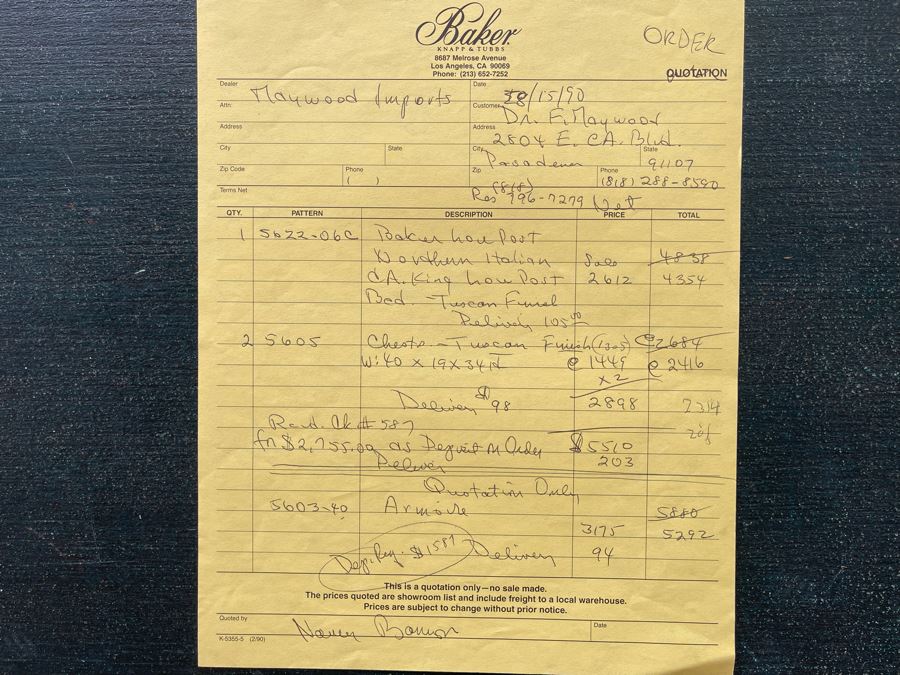 Baker
KNAPP & TUBBS
8687 Melrose Avenue
Los Angeles, CA 90069
Phone: (213) 652-7252
ORDER
QUOTATION
Dealer Maywood Imports
Date 8/15/90
Attn:
Customer Dr. F. Maywood
Address
Address 2804 E. CA. Blvd.
City State
City Pasadena State
Zip Code Phone ( )
Zip 91107 Phone (818) 288-8590
Terms Net
(818)
Res 796-7279 Net
QTY. PATTERN DESCRIPTION PRICE TOTAL
1 5622-06C Baker Low Post
Northern Italian Sale 4838
CA. King Low Post 2612 4354
Bed. - Tuscan Finish
Delivery 105.00
2 5605 Chests - Tuscan Finish (1305) @ 2684
W: 40 x 19 x 34 H @ 1449 @ 2416
x 2
Delivery $98 2898
Ck # 587
$2,755.00 as Deposit on Order $5510
Delivery 203
Quotation Only
5603-40 Armoire 5880
3175 5292
Dep. Req. $1587 Delivery 94
This is a quotation only—no sale made.
The prices quoted are showroom list and include freight to a local warehouse.
Prices are subject to change without prior notice.
Quoted by Nancy
Date
K-5355-5 (2/90)